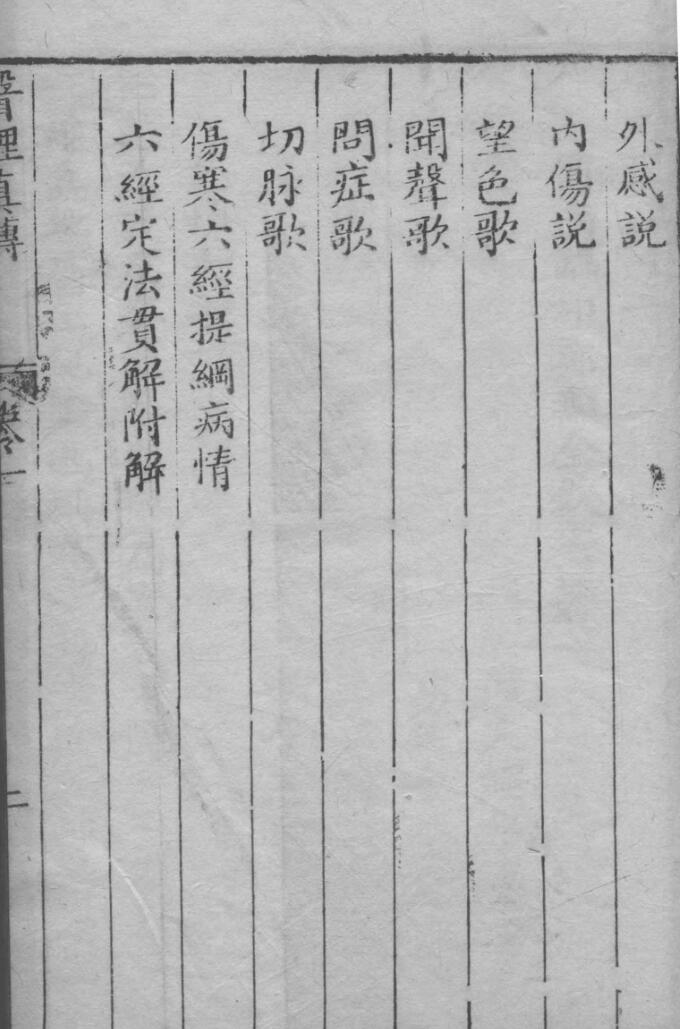 外感説
内傷説
望色歌
聞聲歌
問症歌
切脉歌
傷寒六經提綱病情
六經定法貫解附解
醫理真傳
卷一
二